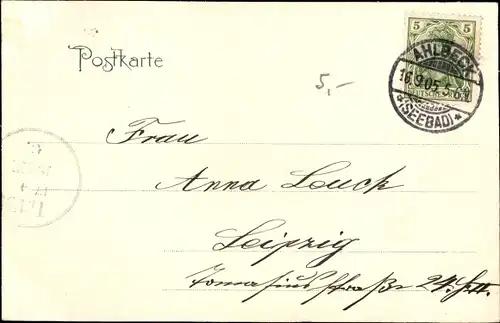 Postkarte
5
DEUTSCHES REICH
AHLBECK
16.9.05.5-6N.
*(SEEBAD)*
5,-
Frau
Anna Luck
Leipzig
Tomasiusstraße 24.